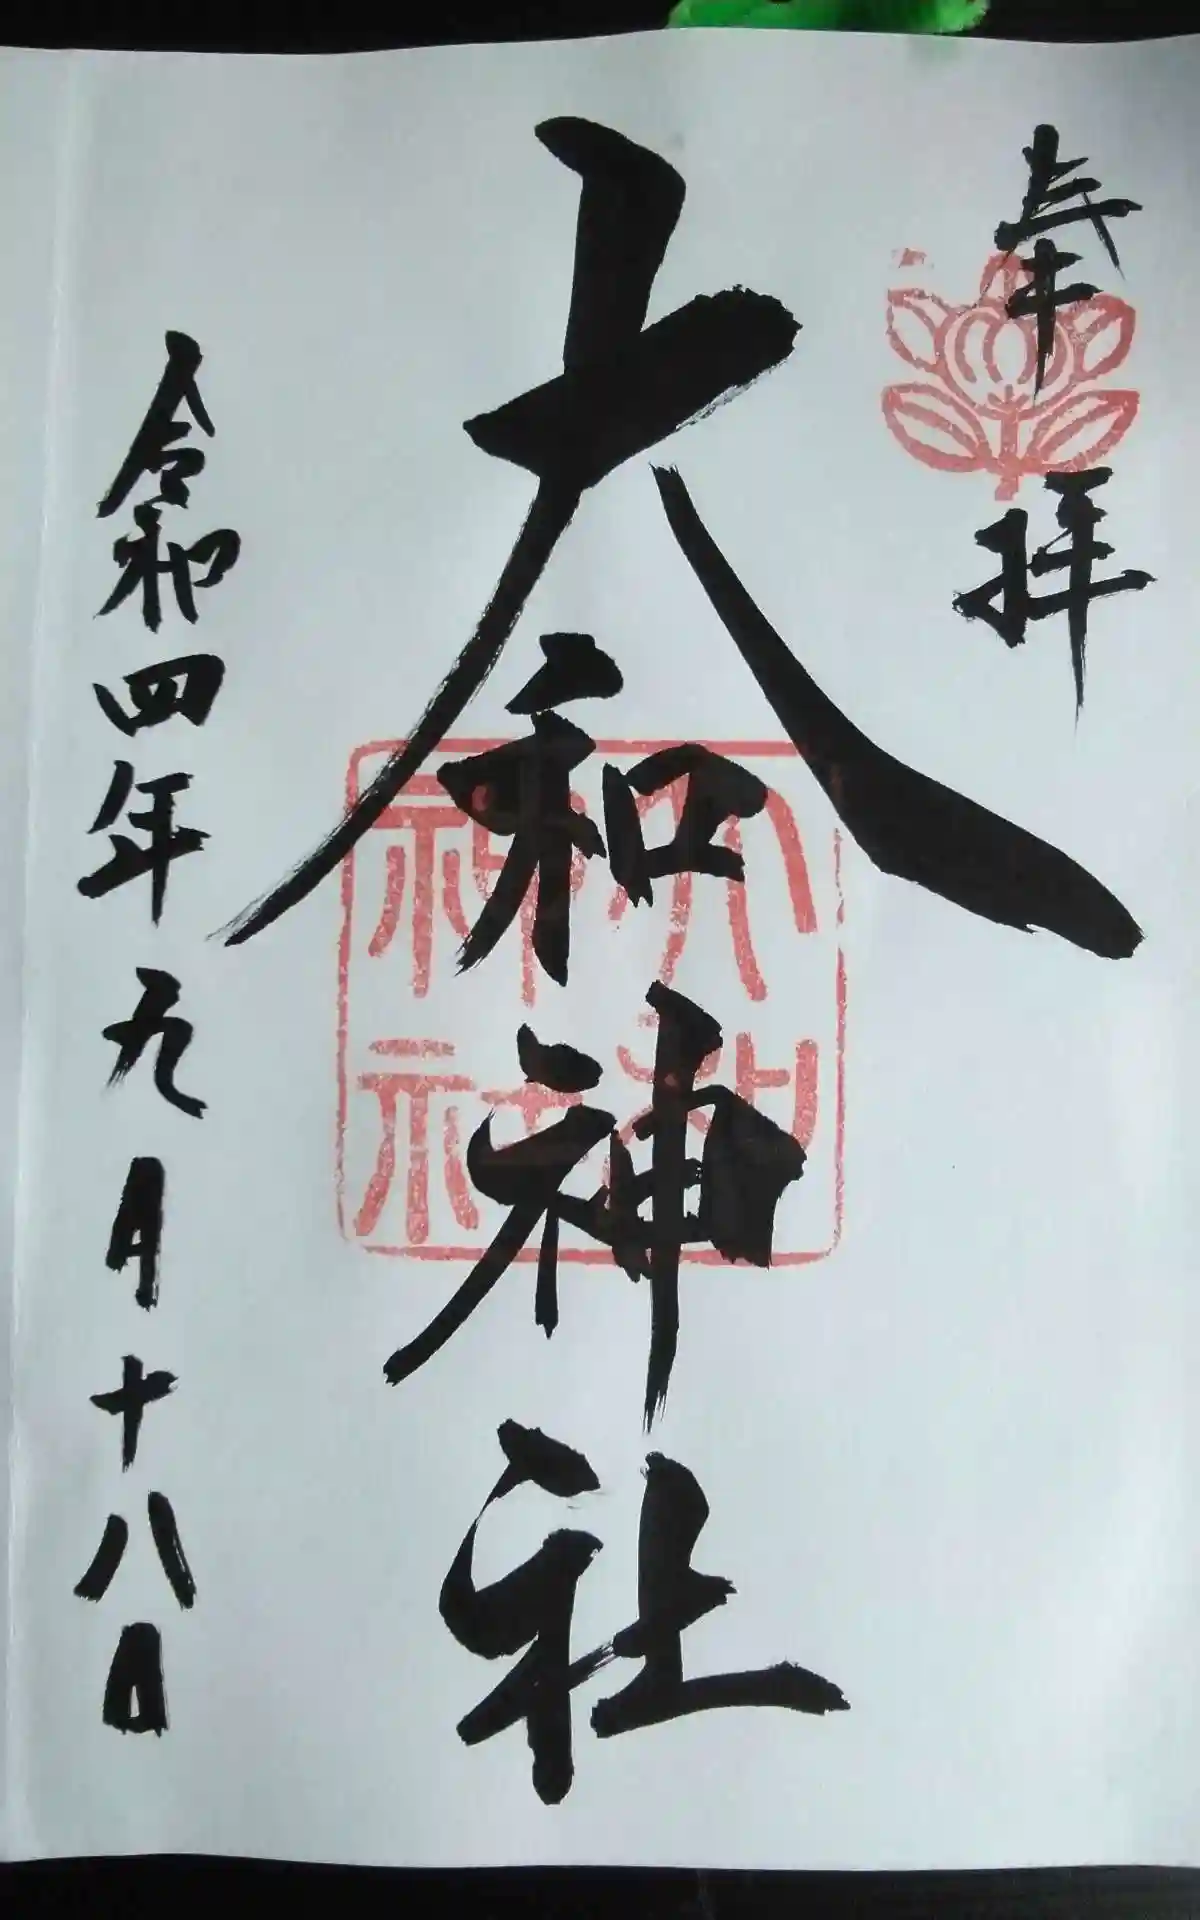 奉拝
大和神社
大和
神社
令和四年九月十八日